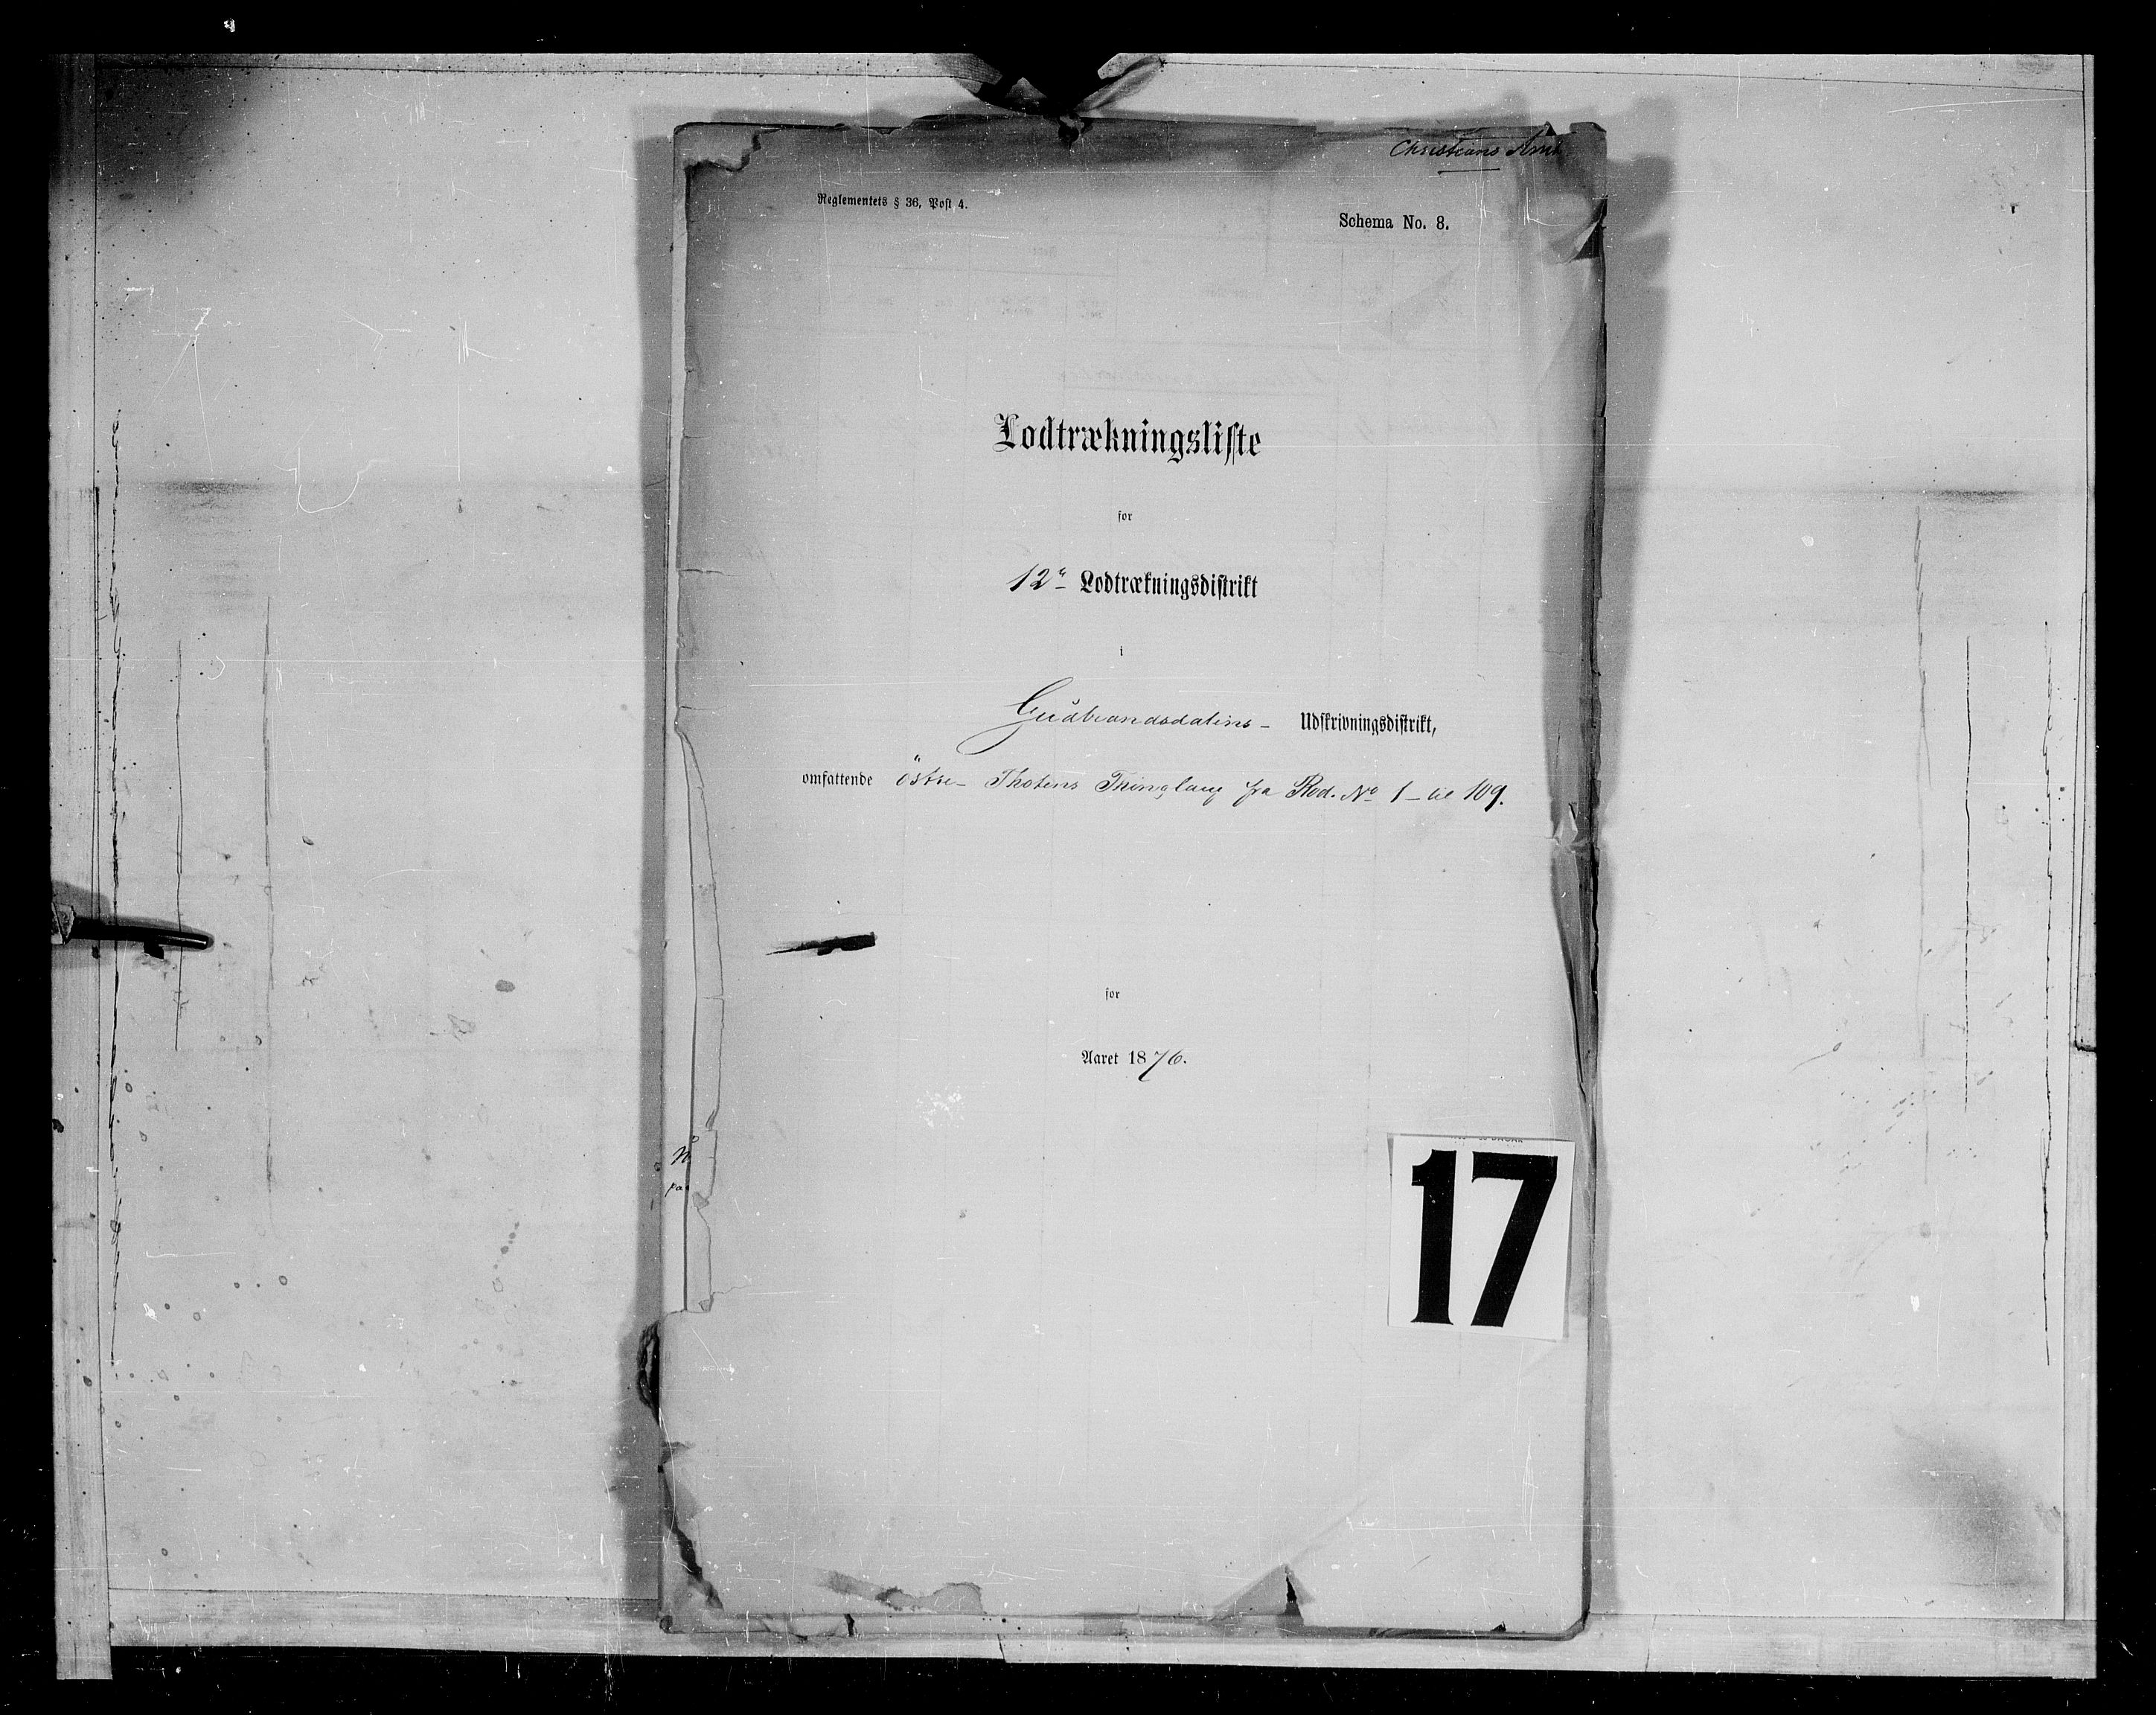 Christians Amt
Reglementets § 36, Post 4.
Schema No. 8.
Lodtrækningsliste
for
12te Lodtrækningsdistrikt
i
Gudbrandsdalens Udskrivningsdistrikt,
omfattende Östre Thotens Thinglaug fra Rod. No 1 til 109.
for
Aaret 1876.
17